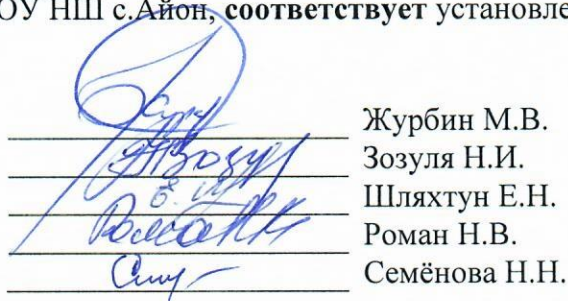 ОУ НШ с.Айон, соответствует установле
Журбин М.В.
Зозуля Н.И.
Шляхтун Е.Н.
Роман Н.В.
Семёнова Н.Н.